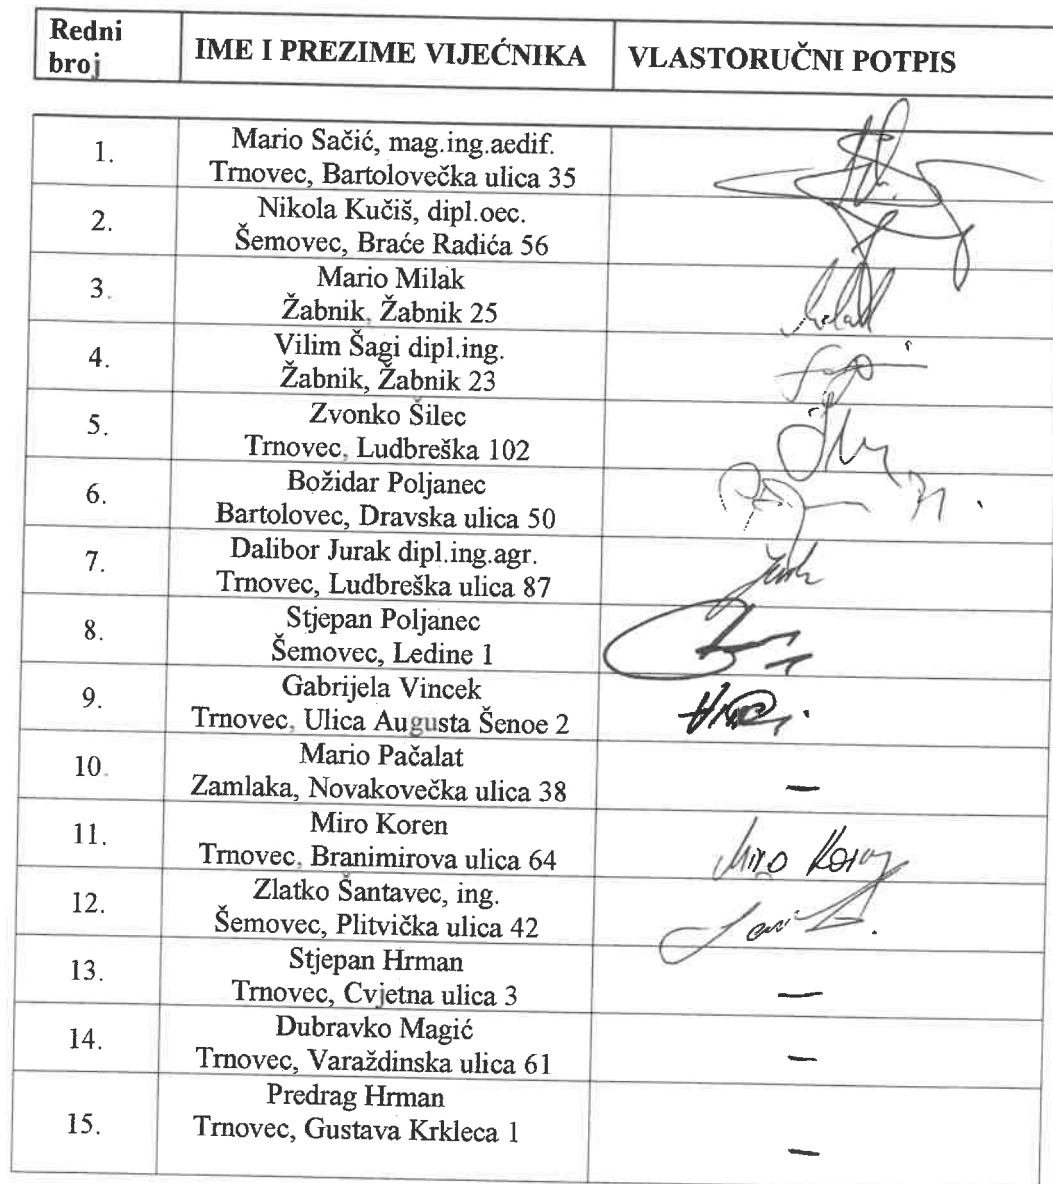 Redni
broj
IME I PREZIME VIJEĆNIKA
VLASTORUČNI POTPIS
1.
Mario Sačić, mag.ing.aedif.
Trnovec, Bartolovečka ulica 35
2.
Nikola Kučiš, dipl.oec.
Šemovec, Braće Radića 56
3.
Mario Milak
Žabnik, Žabnik 25
4.
Vilim Šagi dipl.ing.
Žabnik, Žabnik 23
5.
Zvonko Šilec
Trnovec, Ludbreška 102
6.
Božidar Poljanec
Bartolovec, Dravska ulica 50
7.
Dalibor Jurak dipl.ing.agr.
Trnovec, Ludbreška ulica 87
8.
Stjepan Poljanec
Šemovec, Ledine 1
9.
Gabrijela Vincek
Trnovec, Ulica Augusta Šenoe 2
10.
Mario Pačalat
Zamlaka, Novakovečka ulica 38
–
11.
Miro Koren
Trnovec, Branimirova ulica 64
Miro Koren
12.
Zlatko Šantavec, ing.
Šemovec, Plitvička ulica 42
13.
Stjepan Hrman
Trnovec, Cvjetna ulica 3
–
14.
Dubravko Magić
Trnovec, Varaždinska ulica 61
–
15.
Predrag Hrman
Trnovec, Gustava Krkleca 1
–